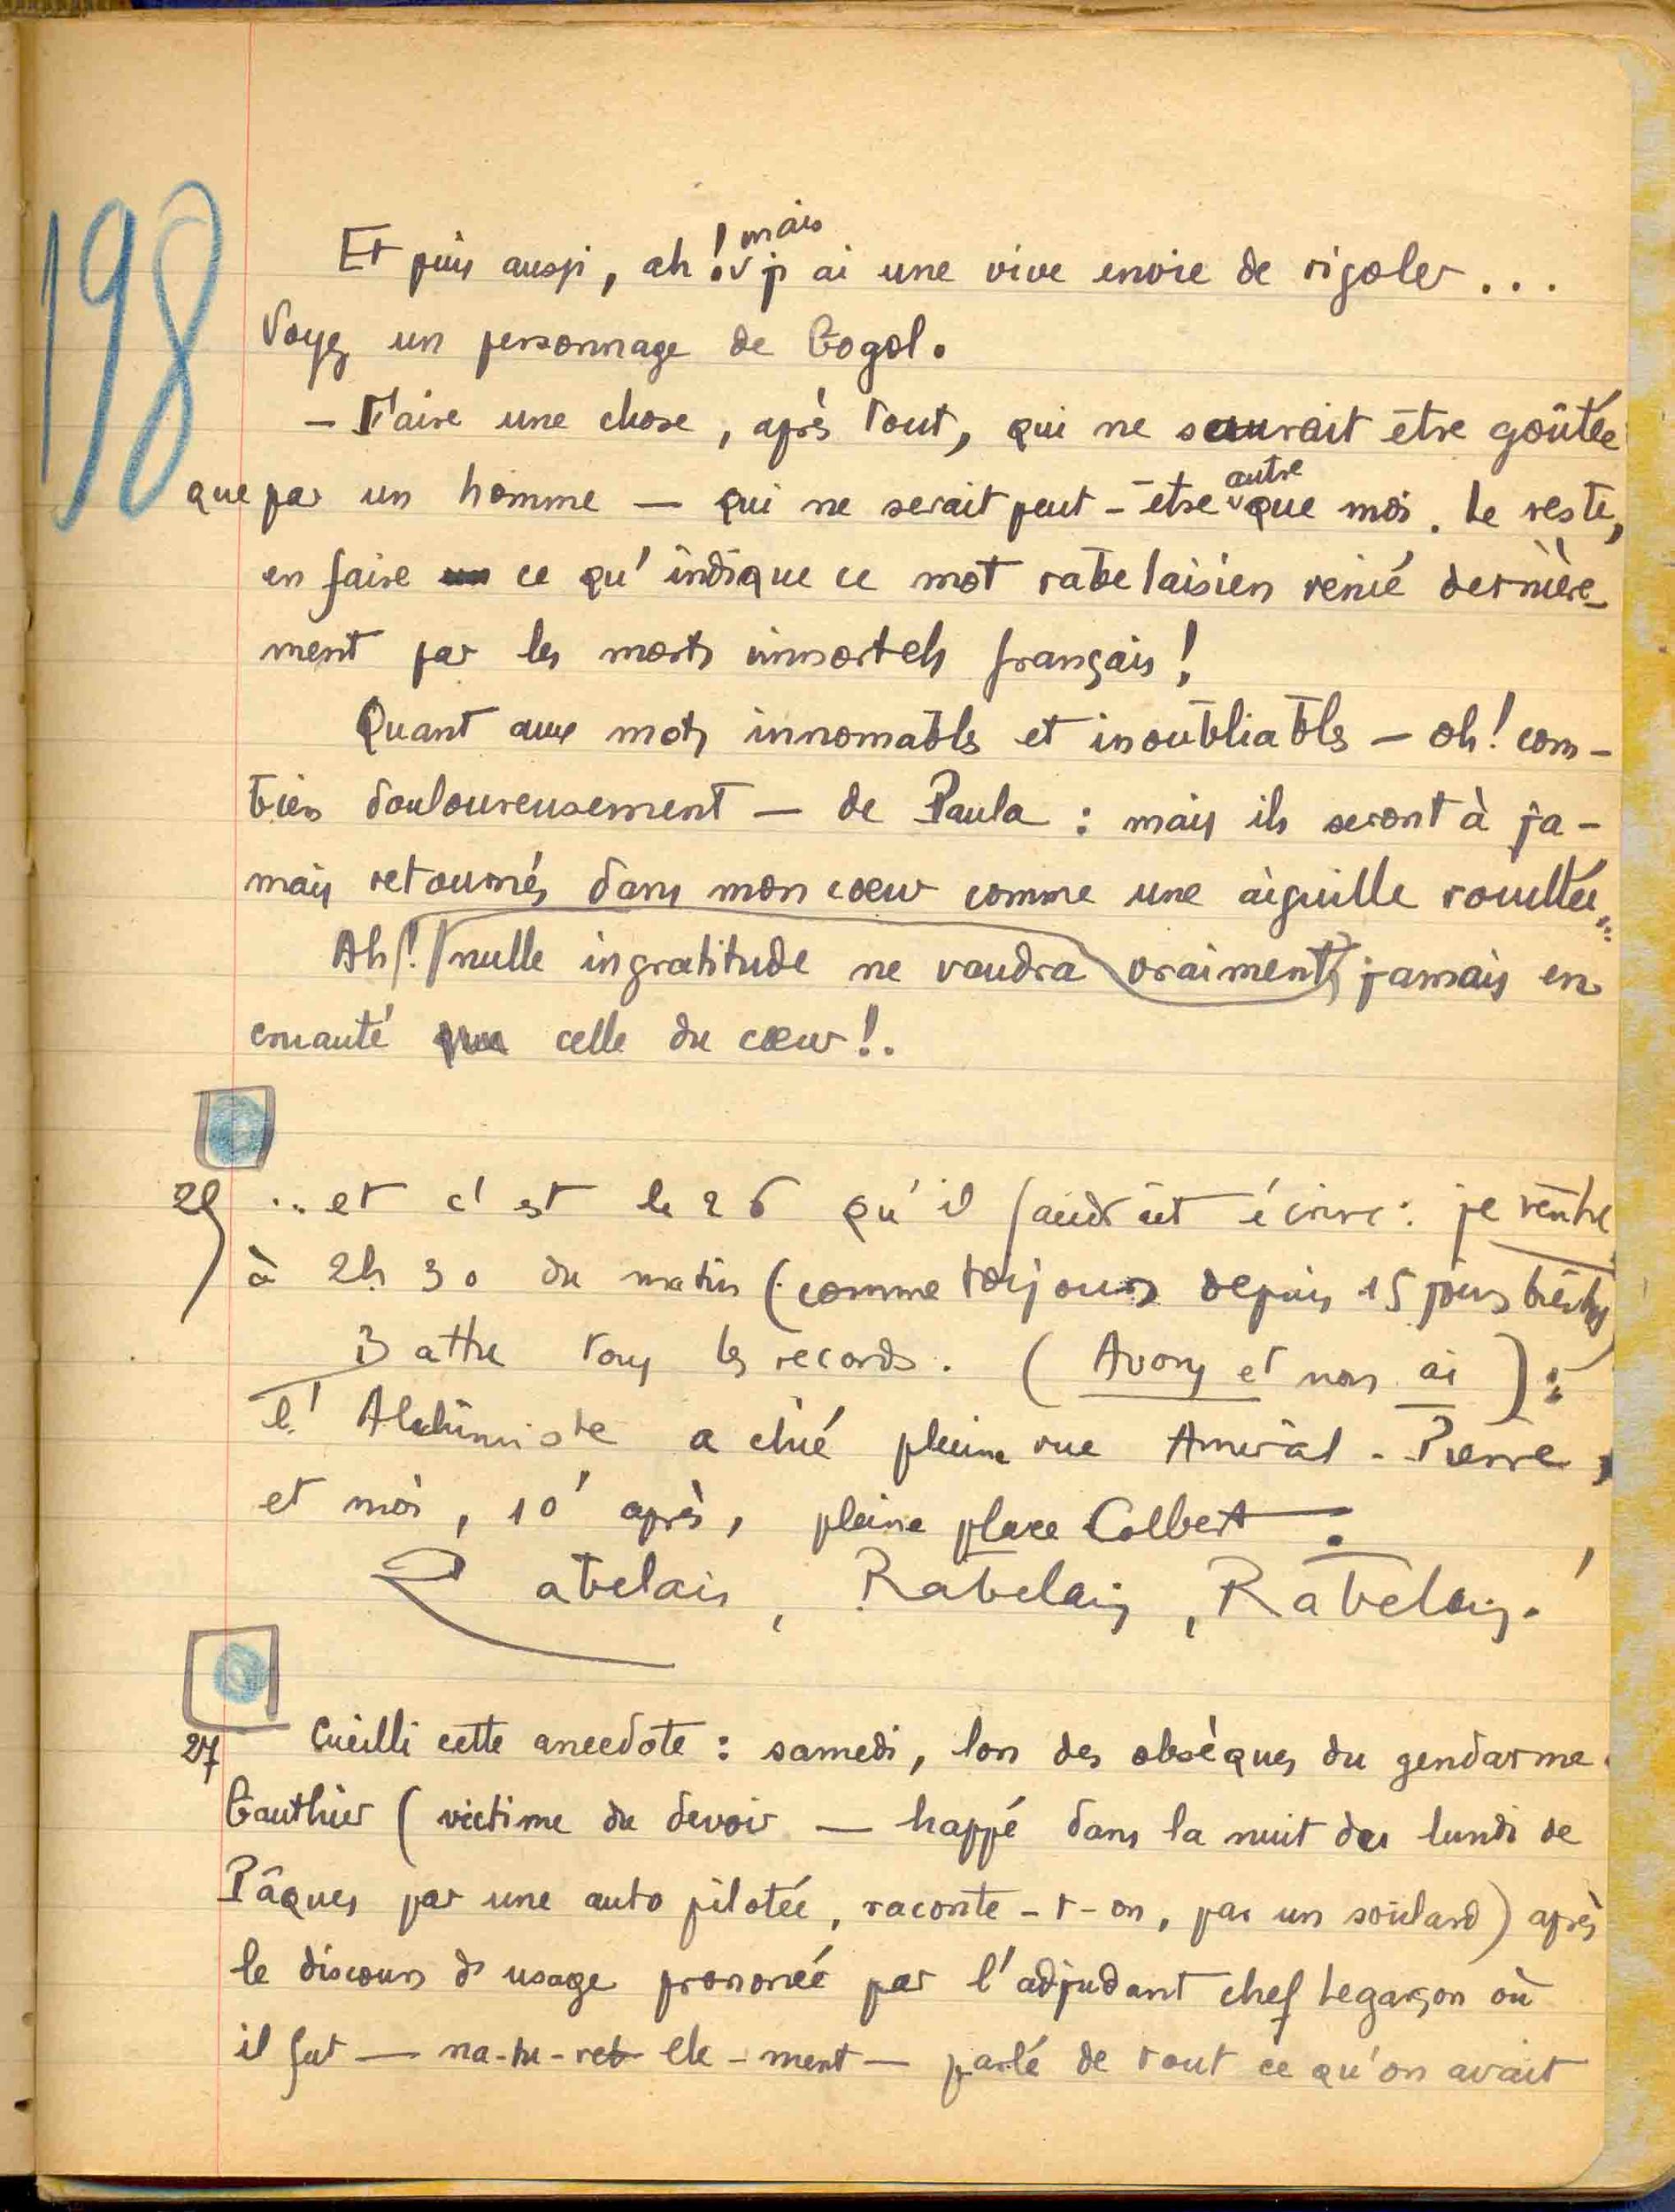 198
Et puis aussi, ah ! mais j'ai une vive envie de rigoler...
Voyez un personnage de Gogol.
— Faire une chose, après tout, qui ne saurait être goûtée
que par un homme — qui ne serait peut-être autre que moi. Le reste,
en faire ce qu'indique ce mot rabelaisien renié dernière-
ment par les morts immortels français !
Quant aux mots innomables et inoubliables — oh ! com-
bien douloureusement — de Paula : mais ils seront à ja-
mais retournés dans mon cœur comme une aiguille rouillée...
Ah ! nulle ingratitude ne vaudra vraiment jamais en
cruauté celle du cœur !.
25 ... et c'est le 26 qu'il faudrait écrire : je rentre
à 2h 30 du matin (comme toujours depuis 15 jours
Battre tous les records. (Avons et non ai) :
l'Alchimiste a chié pleine rue Amiral-Pierre,
et moi, 10' après, pleine place Colbert.
Rabelais, Rabelais, Rabelais !
27 Cueilli cette anecdote : samedi, lors des obsèques du gendarme
Gauthier (victime du devoir — happé dans la nuit du lundi de
Pâques par une auto pilotée, raconte-t-on, par un soûlard) après
le discours d'usage prononcé par l'adjudant chef Legarçon où
il fut — na-tu-rel-le-ment — parlé de tout ce qu'on avait